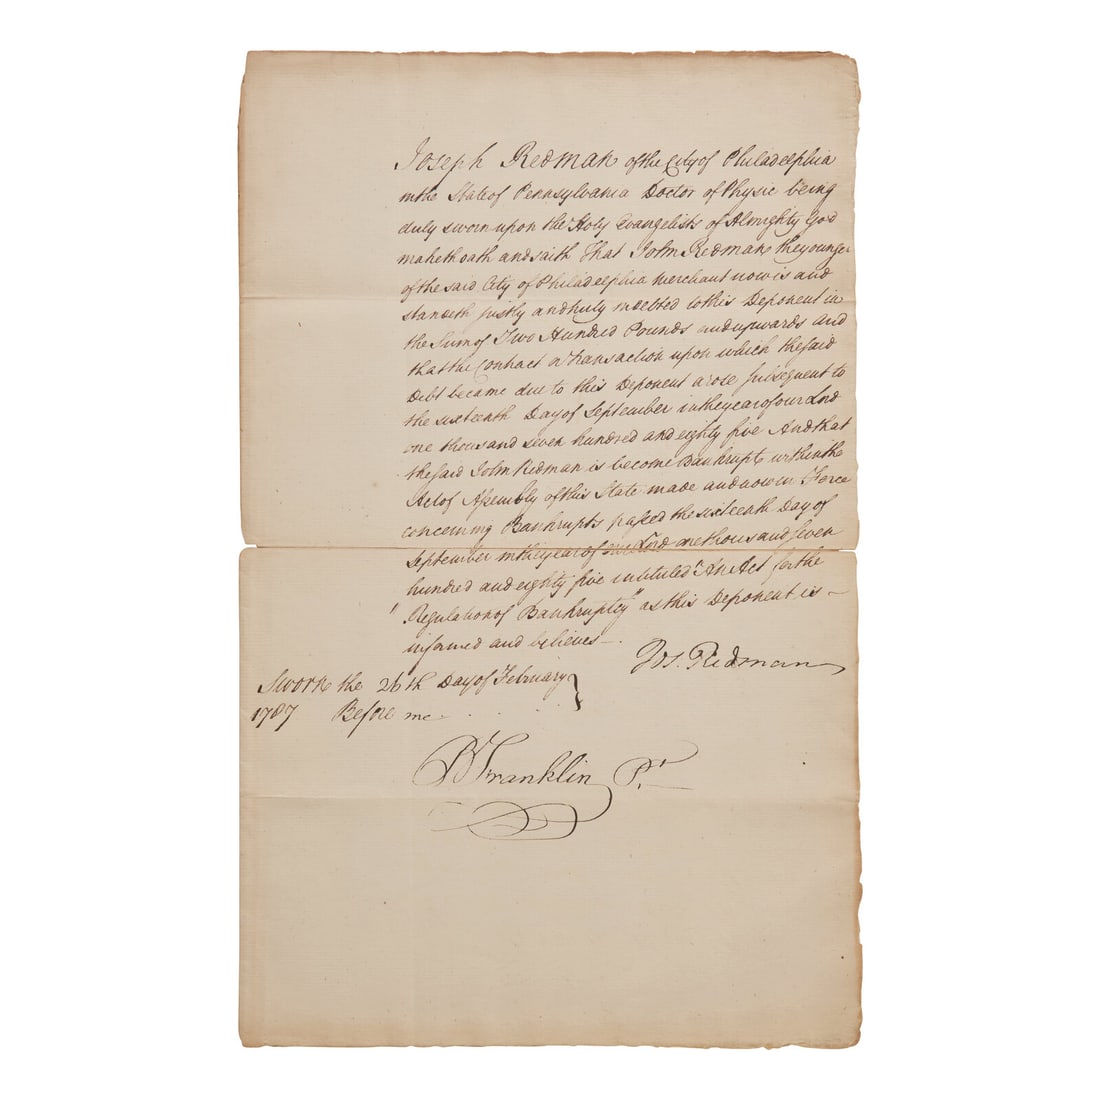 Joseph Redman of the City of Philadelphia
in the State of Pennsylvania Doctor of Physic being
duly sworn upon the Holy Evangelists of Almighty God
maketh oath and saith That John Redman the younger
of the said City of Philadelphia Merchant now is and
standeth justly and truly indebted to this Deponent in
the Sum of Two Hundred Pounds and upwards and
that the Contract or Transaction upon which the said
Debt became due to this Deponent arose subsequent to
the sixteenth Day of September in the year of our Lord
one thousand seven hundred and eighty five And that
the said John Redman is become Bankrupt within the
Act of Assembly of this State made and now in Force
concerning Bankrupts passed the sixteenth Day of
September in the year of our Lord one thousand seven
hundred and eighty five intituled "An Act for the
"Regulation of Bankruptcy" as this Deponent is
informed and believes
Jos. Redman
Sworn the 26th Day of February
1787 Before me
B Franklin Pt.